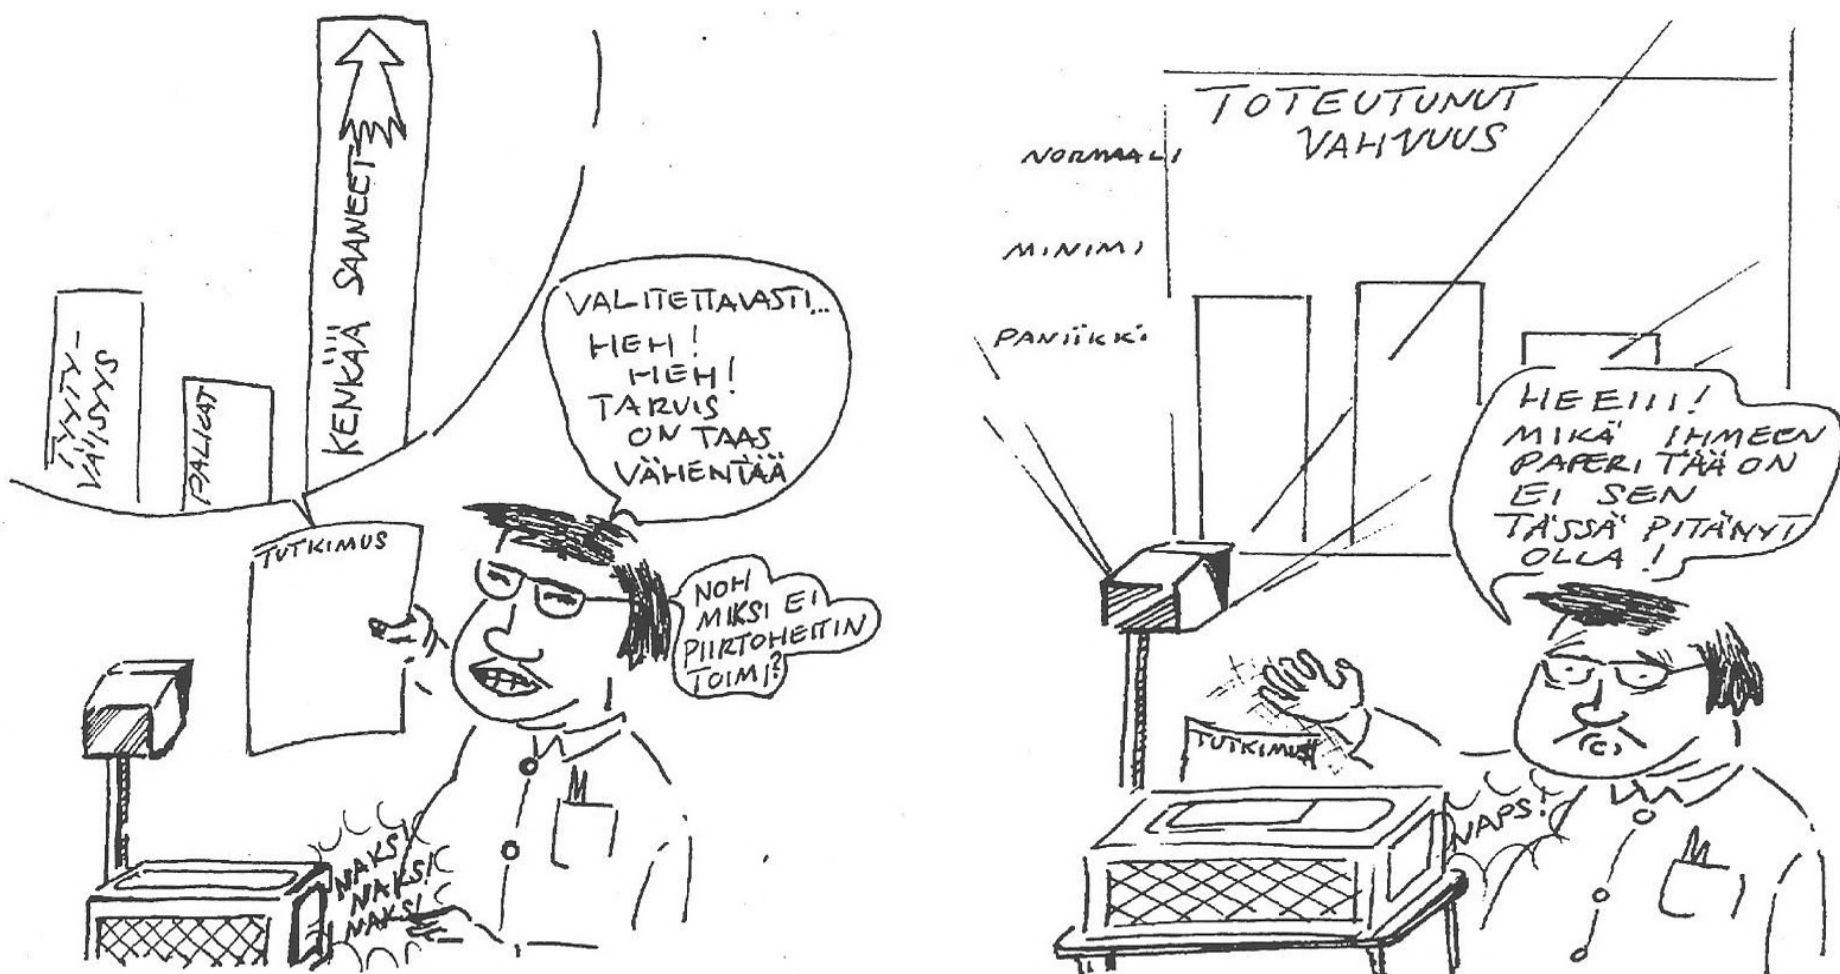 TYYTY-
VÄISYYS
PALKAT
KENKÄÄ SAANEET
VALITETTAVASTI...
HEH!
HEH!
TARVIS
ON TAAS
VÄHENTÄÄ
TUTKIMUS
NOH
MIKSI EI
PIIRTOHEITIN
TOIMI?
NAKS!
NAKS!
NAKS!
TOTEUTUNUT
VAHVUUS
NORMAALI
MINIMI
PANIIKKI
HEEIII!
MIKÄ IHMEEN
PAPERI TÄÄ ON
EI SEN
TÄSSÄ PITÄNYT
OLLA!
TUTKIMUS
NAPS!